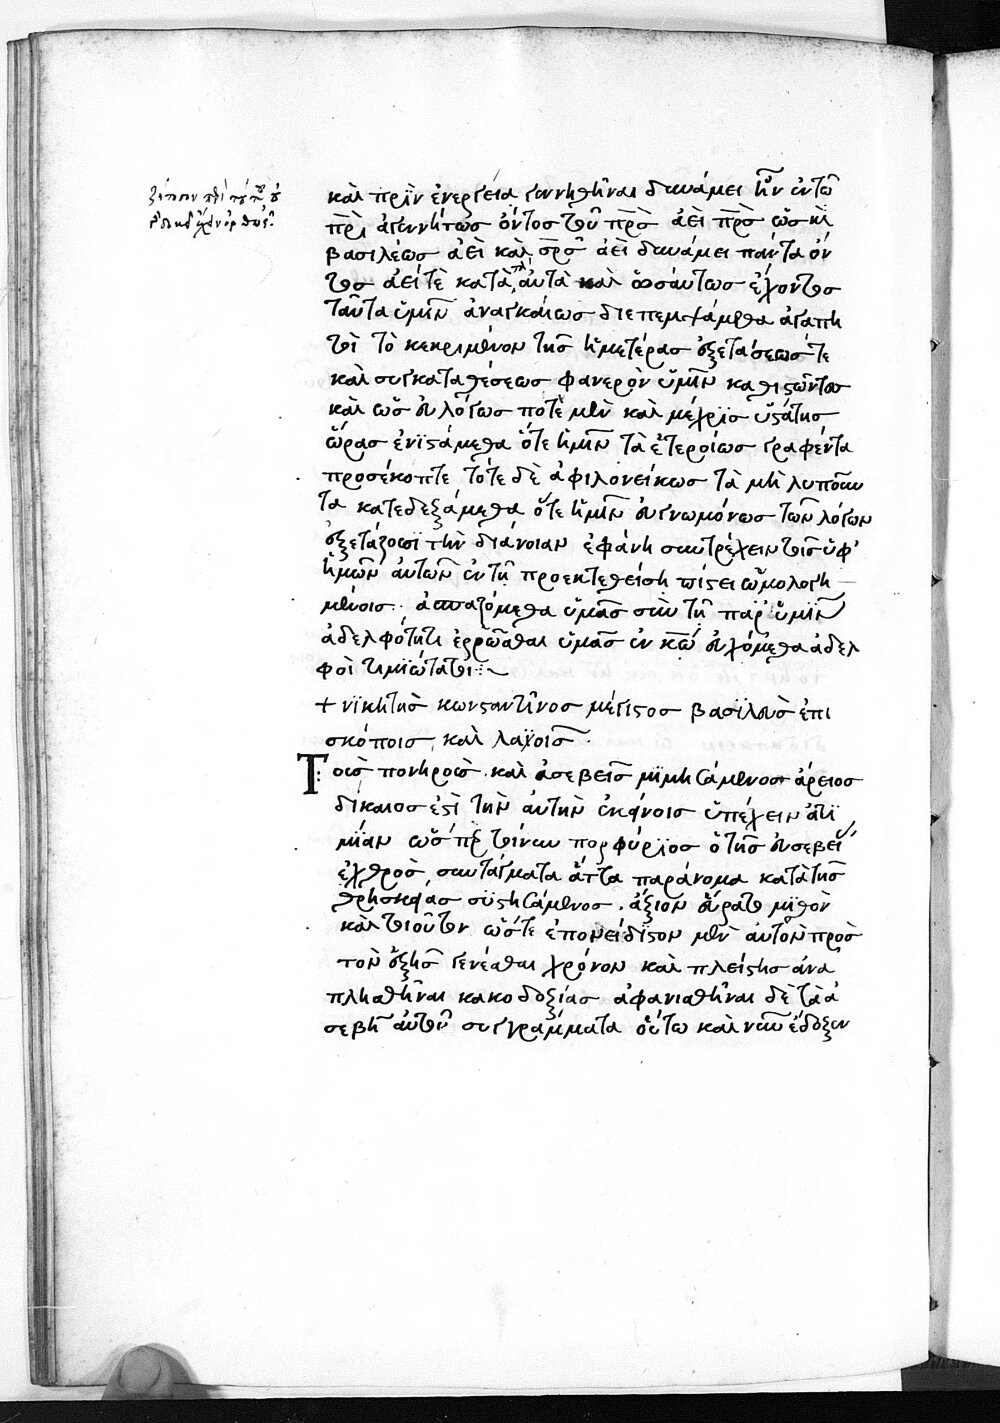 καὶ πρὶν ἐνεργεία γεννηθῆναι δυνάμει ἦν ἐν τῶ
π̅ρ̅ι ἀγεννήτως ὄντος τοῦ π̅ρ̅ς ἀεὶ π̅ρ̅ς ὡς κὶ
βασιλέως ἀεὶ καὶ σ̅ρ̅ς ἀεὶ δυνάμει πάντα ὄν
τος ἀεί τὲ κατὰ τὰ ἀυτὰ καὶ ὡσάυτως ἔχοντος
ταῦτα ὑμῖν ἀναγκάιως διεπεμψάμεθα ἀγαπη
τοὶ τὸ κεκριμένον τῆς ἡμετέρας ἐξετάσεως τε
καὶ συγκαταθέσεως φανερὸν ὑμῖν καθιστῶντες
καὶ ὡς ἐυλόγως ποτὲ μὲν καὶ μέχρις ὑστάτης
ὥρας ἐνιστάμεθα ὅτε ἡμῖν τὰ ἑτεροίως γραφέντα
προσέκοπτε τότε δὲ ἀφιλονείκως τὰ μὴ λυποῦν
τα κατεδεξάμεθα ὅτε ἡμῖν ἐυγνωμόνως τῶν λόγων
ἐξετάζουσι τὴν διάνοιαν ἐφάνη συντρέχειν τοῖς ὑφ'
ἡμῶν ἀυτῶν ἐν τῆ προεκτεθείση πίστει ὡμολογη
μένοις· ἀσπαζόμεθα ὑμᾶς σὺν τῆ παρ' ὑμῖν
ἀδελφότητι ἐρρῶσθαι ὑμᾶς ἐν κ̅ω̅ ἐυχόμεθα ἀδελ
φοὶ τιμιώτατοι
+ νικητὴς κωνσταντῖνος μέγιστος βασιλεὺς ἐπι
σκόποις καὶ λαχοῖς ·
Τοὺς πονηροὺς καὶ ἀσεβεῖς μιμησάμενος ἄρειος
δίκαιός ἐστὶ τὴν ἀυτὴν ἐκείνοις ὑπέχειν ἀτι
μίαν ὥσπερ τοίνυν πορφύριος ὁ τῆς ἐυσεβεί
ἐχθρὸς συντάγματα ἄττα παράνομα κατὰ τῆς
θρησκείας συστησάμενος ἄξιον ἕυρατο μισθὸν
καὶ τοιοῦτον ὥστε ἐπονείδιστον μὲν ἀυτὸν πρὸς
τὸν ἑξῆς γενέσθαι χρόνον καὶ πλείστης ἀνα
πλησθῆναι κακοδοξίας ἀφανισθῆναι δὲ τὰ ἀ
σεβῆ ἀυτοῦ συγγράμματα οὕτω καὶ νῦν ἔδοξεν